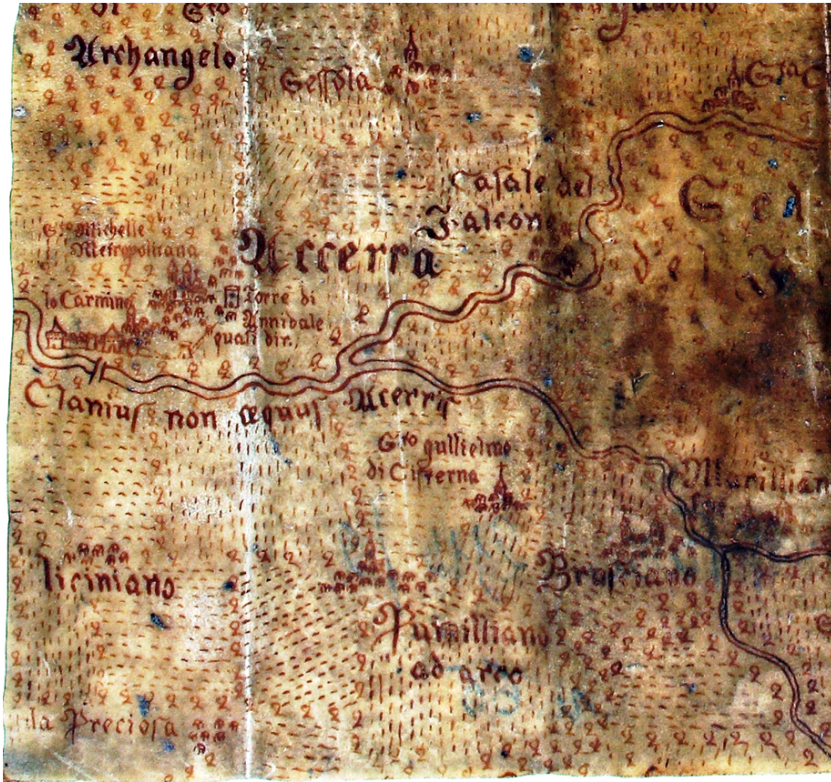 di Sto
Archangelo
Sessola
Casale del
Falcone
Sto Michelle
Metropolitana
Accerra
lo Carmino
Torre di
Annibale
quasi dir.
Clanius non æquus Acerris
Sto gullielmo
di Cisterna
Marillian
liciniano
Brosciano
Pumilliano
ad arco
la Preciosa